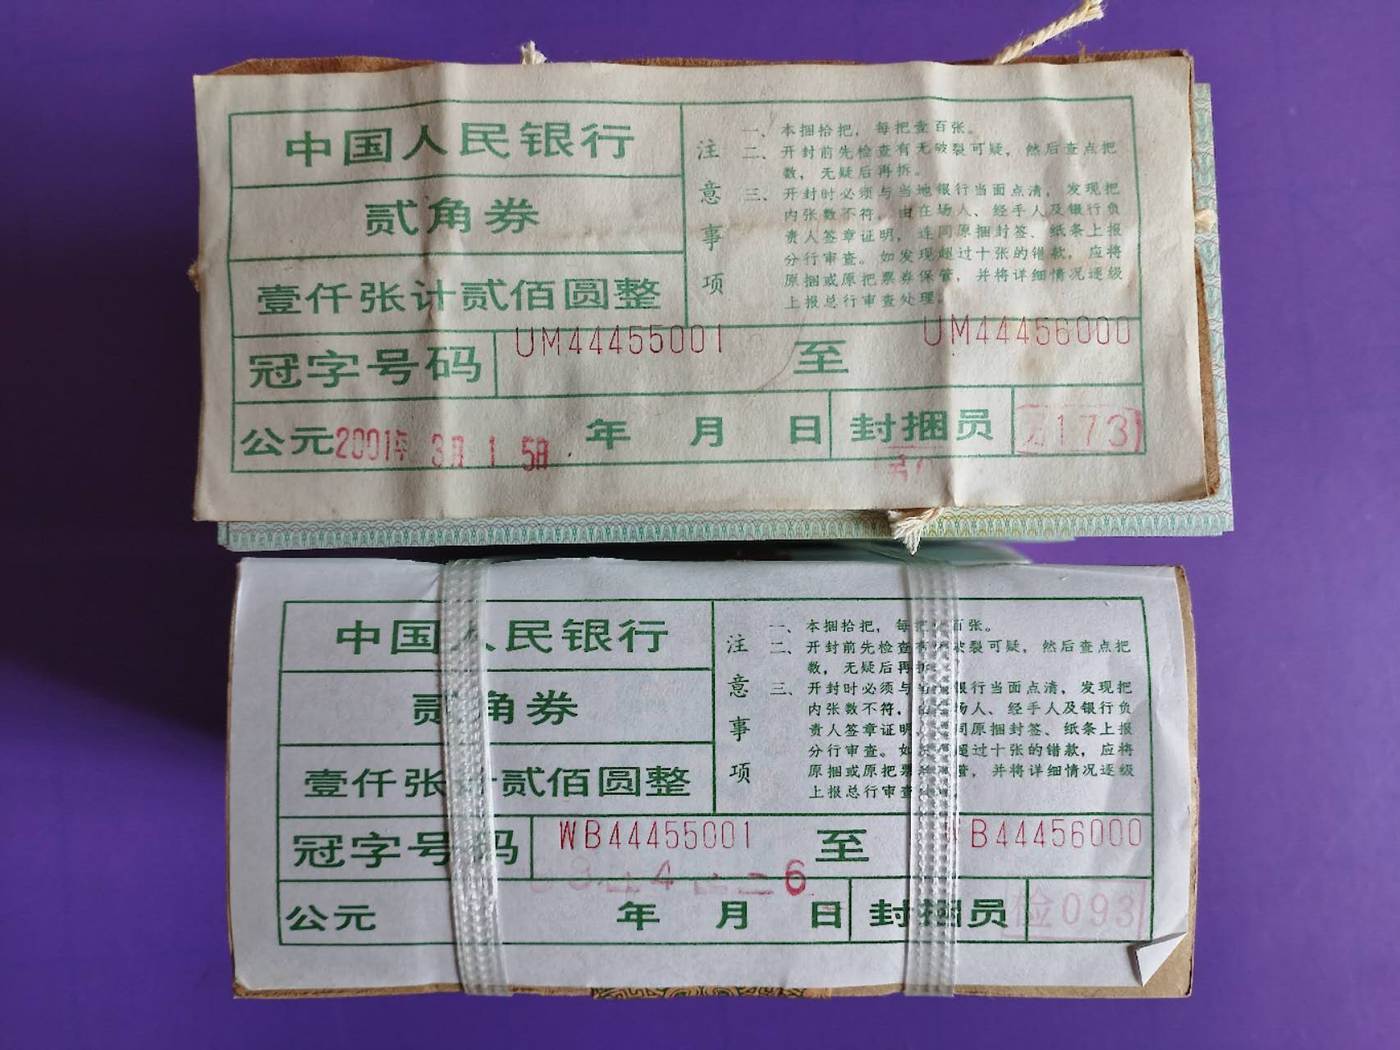 中国人民银行
贰角券
壹仟张计贰佰圆整
注意事项
一、本捆拾把，每把壹百张。
二、开封前先检查有无破裂可疑，然后查点把
数，无疑后再拆。
三、开封时必须与当地银行当面点清，发现把
内张数不符，由在场人、经手人及银行负
责人签章证明，连同原捆封签、纸条上报
分行审查。如发现超过十张的错款，应将
原捆或原把票券保管，并将详细情况逐级
上报总行审查处理。
冠字号码 UM44455001 至 UM44456000
公元2001年 3月 15日 年 月 日 封捆员 173
中国人民银行
贰角券
壹仟张计贰佰圆整
注意事项
一、本捆拾把，每 百张。
二、开封前先检查 破裂可疑，然后查点把
数，无疑后再
三、开封时必须与 银行当面点清，发现把
内张数不符， 场人、经手人及银行负
责人签章证明 同原捆封签、纸条上报
分行审查。如 超过十张的错款，应将
原捆或原把票 管，并将详细情况逐级
上报总行审查
冠字号码 WB44455001 至 B44456000
4 6
公元 年 月 日 封捆员 检093